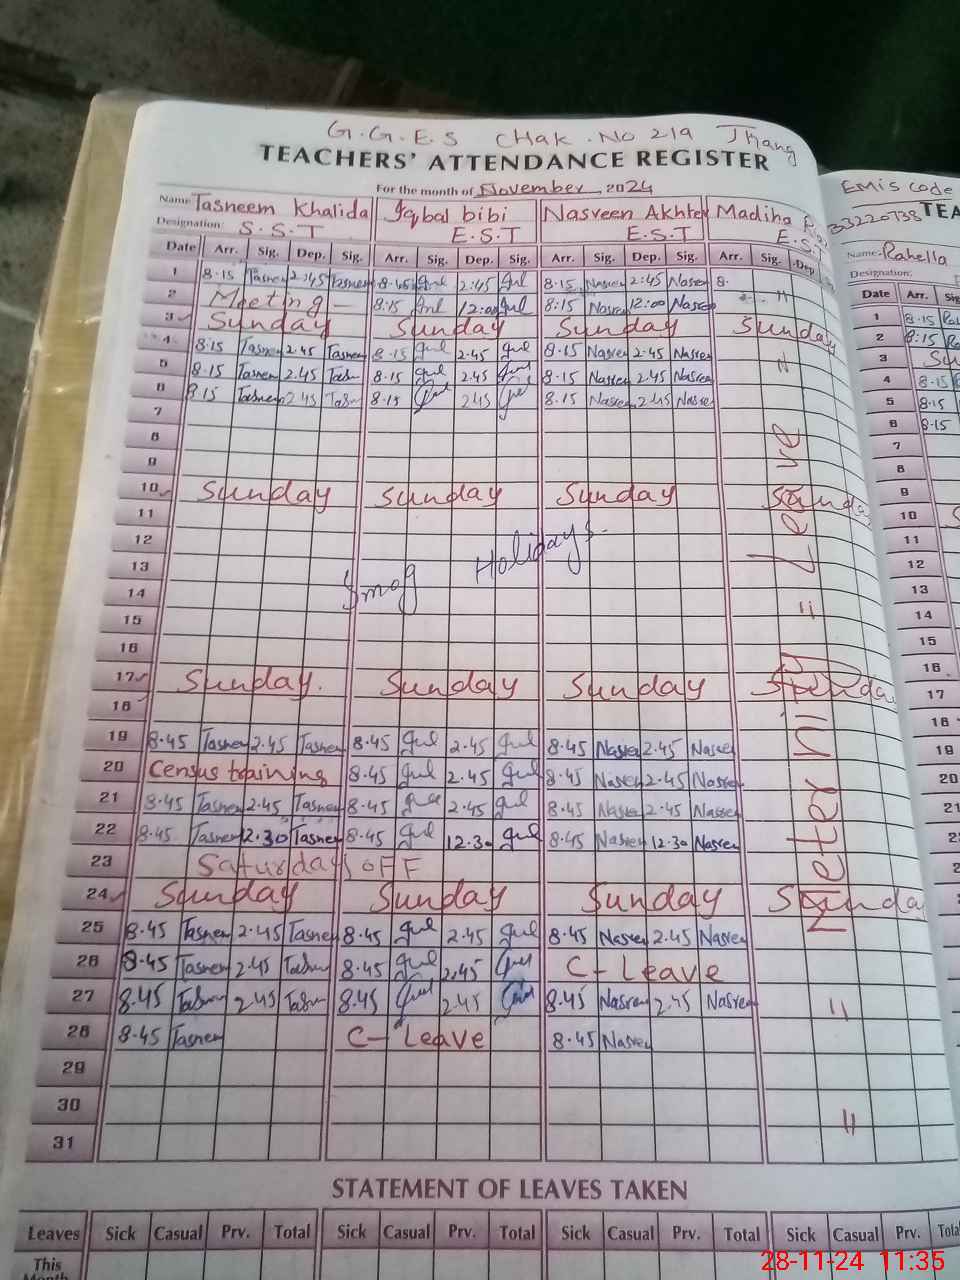 G.G.E.S CHAK.No 219 Jhang
TEACHERS' ATTENDANCE REGISTER
For the month of November 2024
EMIS code
33220738
TEA
Name: Tasneem Khalida Iqbal bibi Nasreen Akhter Madiha
Designation: S.S.T E.S.T E.S.T E.S.
Name: Rahella
Designation:
Date Arr. Sig. Dep. Sig. Arr. Sig. Dep. Sig. Arr. Sig. Dep. Sig. Arr. Sig. Dep
Date Arr. Sig
1 8.15 Tasneem 2.45 Tasneem 8.45 gul 2.45 gul 8.15 Nasreen 2.45 Nasreen 8. 1 8.15
2 Meeting — 8:15 gul 12:00 gul 8:15 Nasreen 12:00 Nasreen " 2 8:15
3 Sunday Sunday Sunday Sunday 3 Su
4 8.15 Tasneem 2.45 Tasneem 8.15 gul 2.45 gul 8.15 Nasreen 2.45 Nasreen 4 8.15
5 8.15 Tasneem 2.45 Tasneem 8.15 gul 2.45 gul 8.15 Nasreen 2.45 Nasreen 5 8.15
6 8.15 Tasneem 2.45 Tasneem 8.15 gul 2.45 gul 8.15 Nasreen 2.45 Nasreen 6 8.15
7 7
8 8
9 9
10 Sunday Sunday Sunday Sunday 10 S
11 11
12 12
13 Smog Holidays. 13
14 14
15 15
16 16
17 Sunday. Sunday Sunday Sunday 17
18 18
19 8.45 Tasneem 2.45 Tasneem 8.45 gul 2.45 gul 8.45 Nasreen 2.45 Nasreen 19
20 Census training 8.45 gul 2.45 gul 8.45 Nasreen 2.45 Nasreen 20
21 8.45 Tasneem 2.45 Tasneem 8.45 gul 2.45 gul 8.45 Nasreen 2.45 Nasreen 21
22 8.45 Tasneem 12.30 Tasneem 8.45 gul 12.30 gul 8.45 Nasreen 12.30 Nasreen 22
23 Saturday OFF 23
24 Sunday Sunday Sunday Sunday
25 8.45 Tasneem 2.45 Tasneem 8.45 gul 2.45 gul 8.45 Nasreen 2.45 Nasreen 25
26 8.45 Tasneem 2.45 Tasneem 8.45 gul 2.45 gul C- Leave 26
27 8.45 Tasneem 2.45 Tasneem 8.45 gul 2.45 gul 8.45 Nasreen 2.45 Nasreen " 27
28 8.45 Tasneem C- Leave 8.45 Nasreen 28
29 29
30 " 30
31 31
Meternity = Leave =
STATEMENT OF LEAVES TAKEN
Leaves Sick Casual Prv. Total Sick Casual Prv. Total Sick Casual Prv. Total Sick Casual Prv. Total
This
Month
28-11-24 11:35